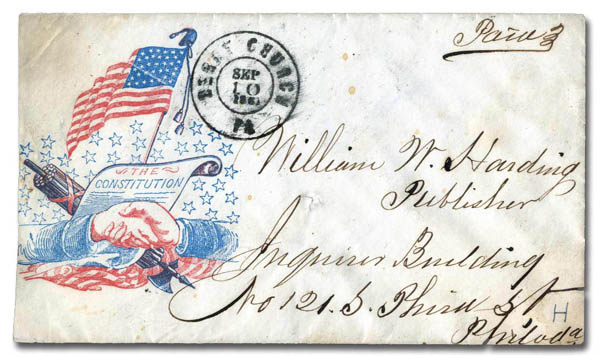 Paid 3
CHURCH
SEP
10
PA
THE
CONSTITUTION
William W. Harding
Publisher
Inquirer Building
No 121. S. Third St
Philada
H